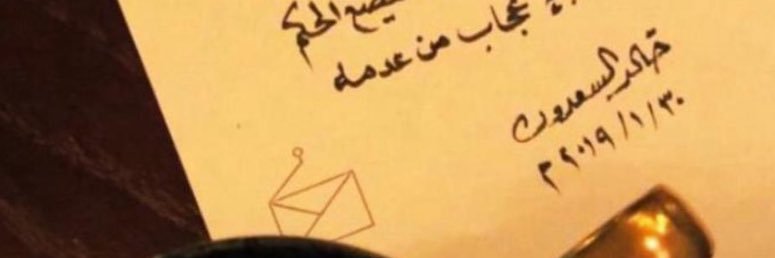 يصنع الحكم
عجاب من عدمه
خالد السعدون
٢٠١٩/١/٣٠ م